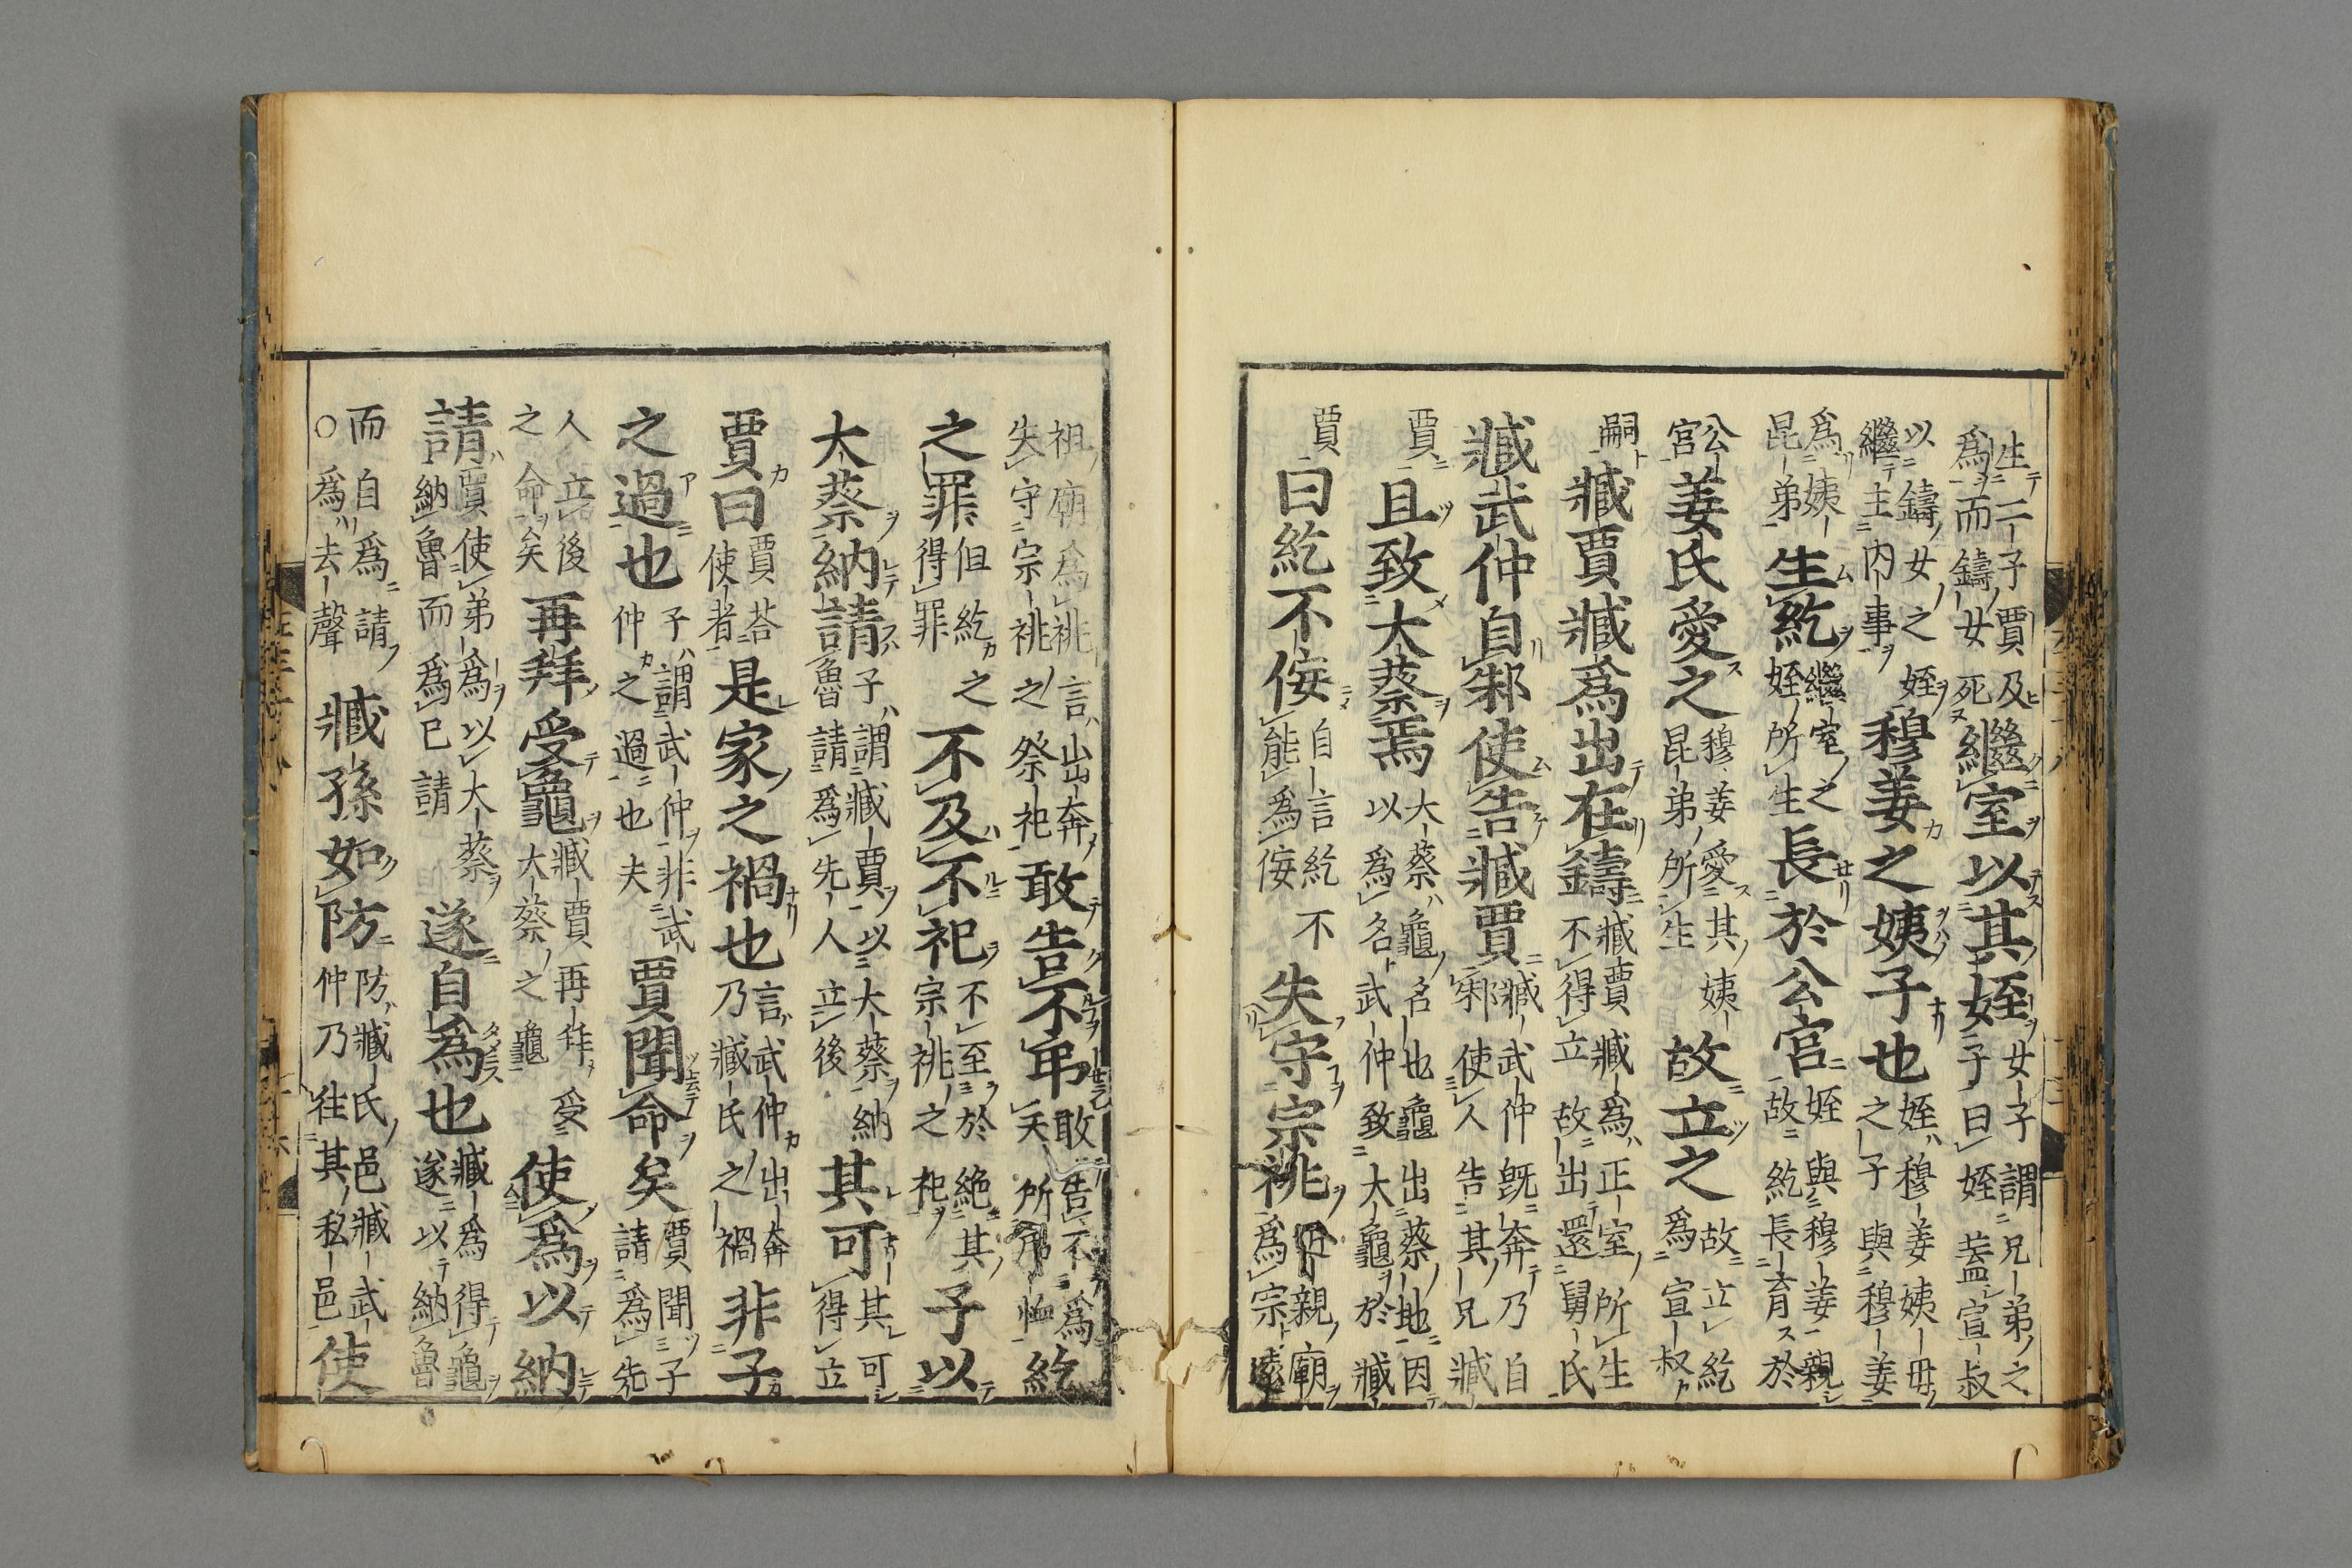 生二子賈及爲而鑄女死繼室以其姪女子謂兄弟之女子曰姪蓋宣叔
以鑄女之姪繼主內事穆姜之姨子也姪穆姜姨母之子與穆姜
爲姨昆弟生紇繼室之姪所生長於公宮姪與穆姜親故紇長育於
公宮姜氏愛之穆姜愛其姨昆弟所生故立之故立紇爲宣叔
嗣臧賈臧爲出在鑄臧賈臧爲正室所生不得立故出還舅氏
臧武仲自邾使告臧賈臧武仲旣奔邾使人告其兄臧
賈且致大蔡焉大蔡龜名也龜出蔡地因以爲名武仲致大龜於臧
賈曰紇不佞自言紇不能爲佞失守宗祧親廟爲宗遠
祖廟爲祧言出奔失守宗祧之祭祀敢告不弔敢告不爲天所弔恤紇
之罪但紇之得罪不及不祀不至於絶其宗祧之祀子以
大蔡納請子謂臧賈以大蔡納魯請爲先人立後其可其可得立
賈曰賈荅使者是家之禍也言武仲出奔乃臧氏之禍非子
之過也子謂武仲非武仲之過也夫賈聞命矣賈聞子請爲先
人立後之命矣再拜受龜臧賈再拜受大蔡之龜使爲以納
請賈使弟爲以大蔡納魯而爲己請遂自爲也臧爲得龜遂以納魯
而自爲請○爲去聲臧孫如防防臧氏邑臧武仲乃往其私邑使